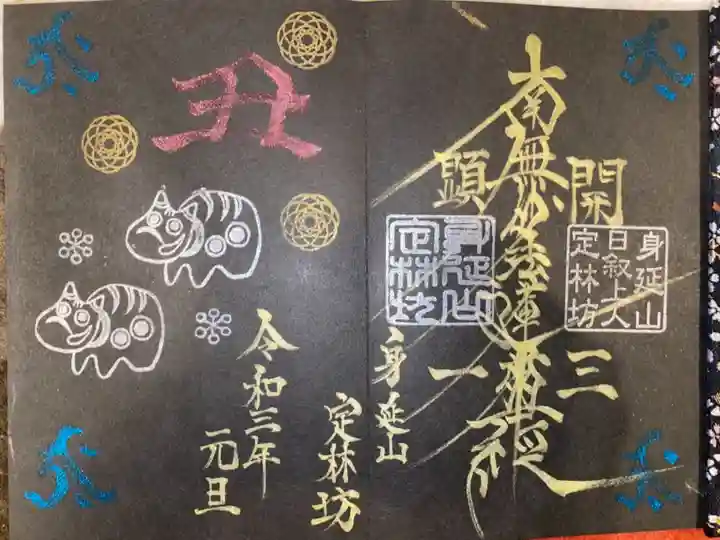 開
三
南無妙法蓮華経
顕
一
身延山
日叙上人
定林坊
身延山
定林坊
身延山
定林坊
令和三年
元旦
丑